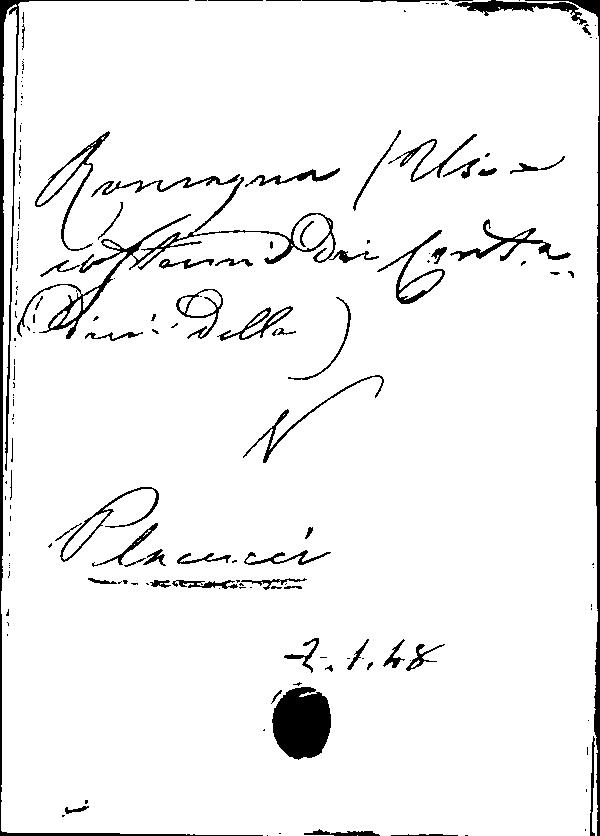 Romagna (Usi e
costumi dei Conta=
dini della)
V
Placucci
2.1.48